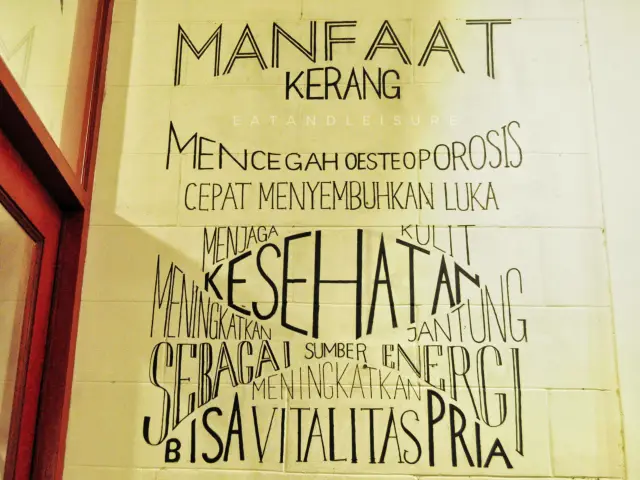 MANFAAT
KERANG
EATANDLEISURE
MENCEGAH OESTEOPOROSIS
CEPAT MENYEMBUHKAN LUKA
MENJAGA KULIT
KESEHATAN
MENINGKATKAN JANTUNG
SEBAGAI SUMBER ENERGI
MENINGKATKAN
BISA VITALITAS PRIA